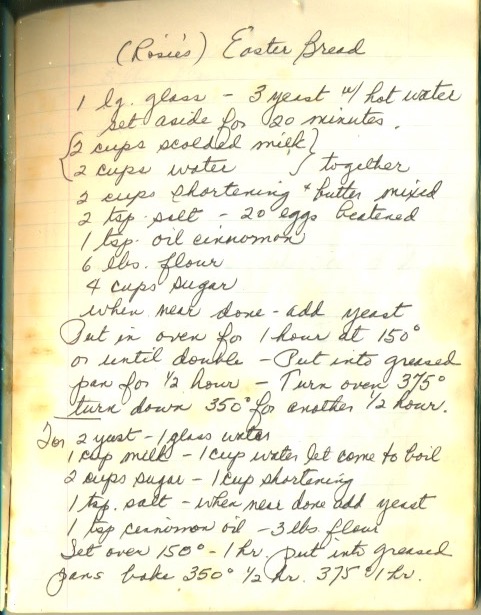 (Rosie's) Easter Bread
1 lg. glass - 3 yeast w/ hot water
set aside for 20 minutes.
{2 cups scolded milk}
{2 cups water } together
2 cups shortening & butter mixed
2 tsp. salt - 20 eggs beatened
1 tsp. oil cinnomon
6 lbs. flour
4 cups sugar
when near done - add yeast
Put in oven for 1 hour at 150°
or until double - Put into greased
pan for 1/2 hour - Turn over 375°
turn down 350° for another 1/2 hour.
For 2 yeast - 1 glass water
1 cup milk - 1 cup water let come to boil
2 cups sugar - 1 cup shortening
1 tsp. salt - when near done add yeast
1 tsp cinnomon oil - 3 lbs. flour
Set over 150° - 1 hr. put into greased
pans bake 350° 1/2 hr. 375° 1 hr.